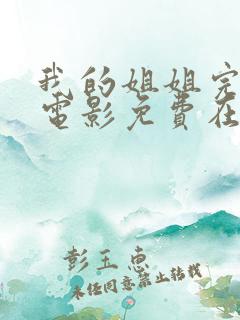 我的姐姐完
電影免費在
彭玉惠
未任同意禁止转载